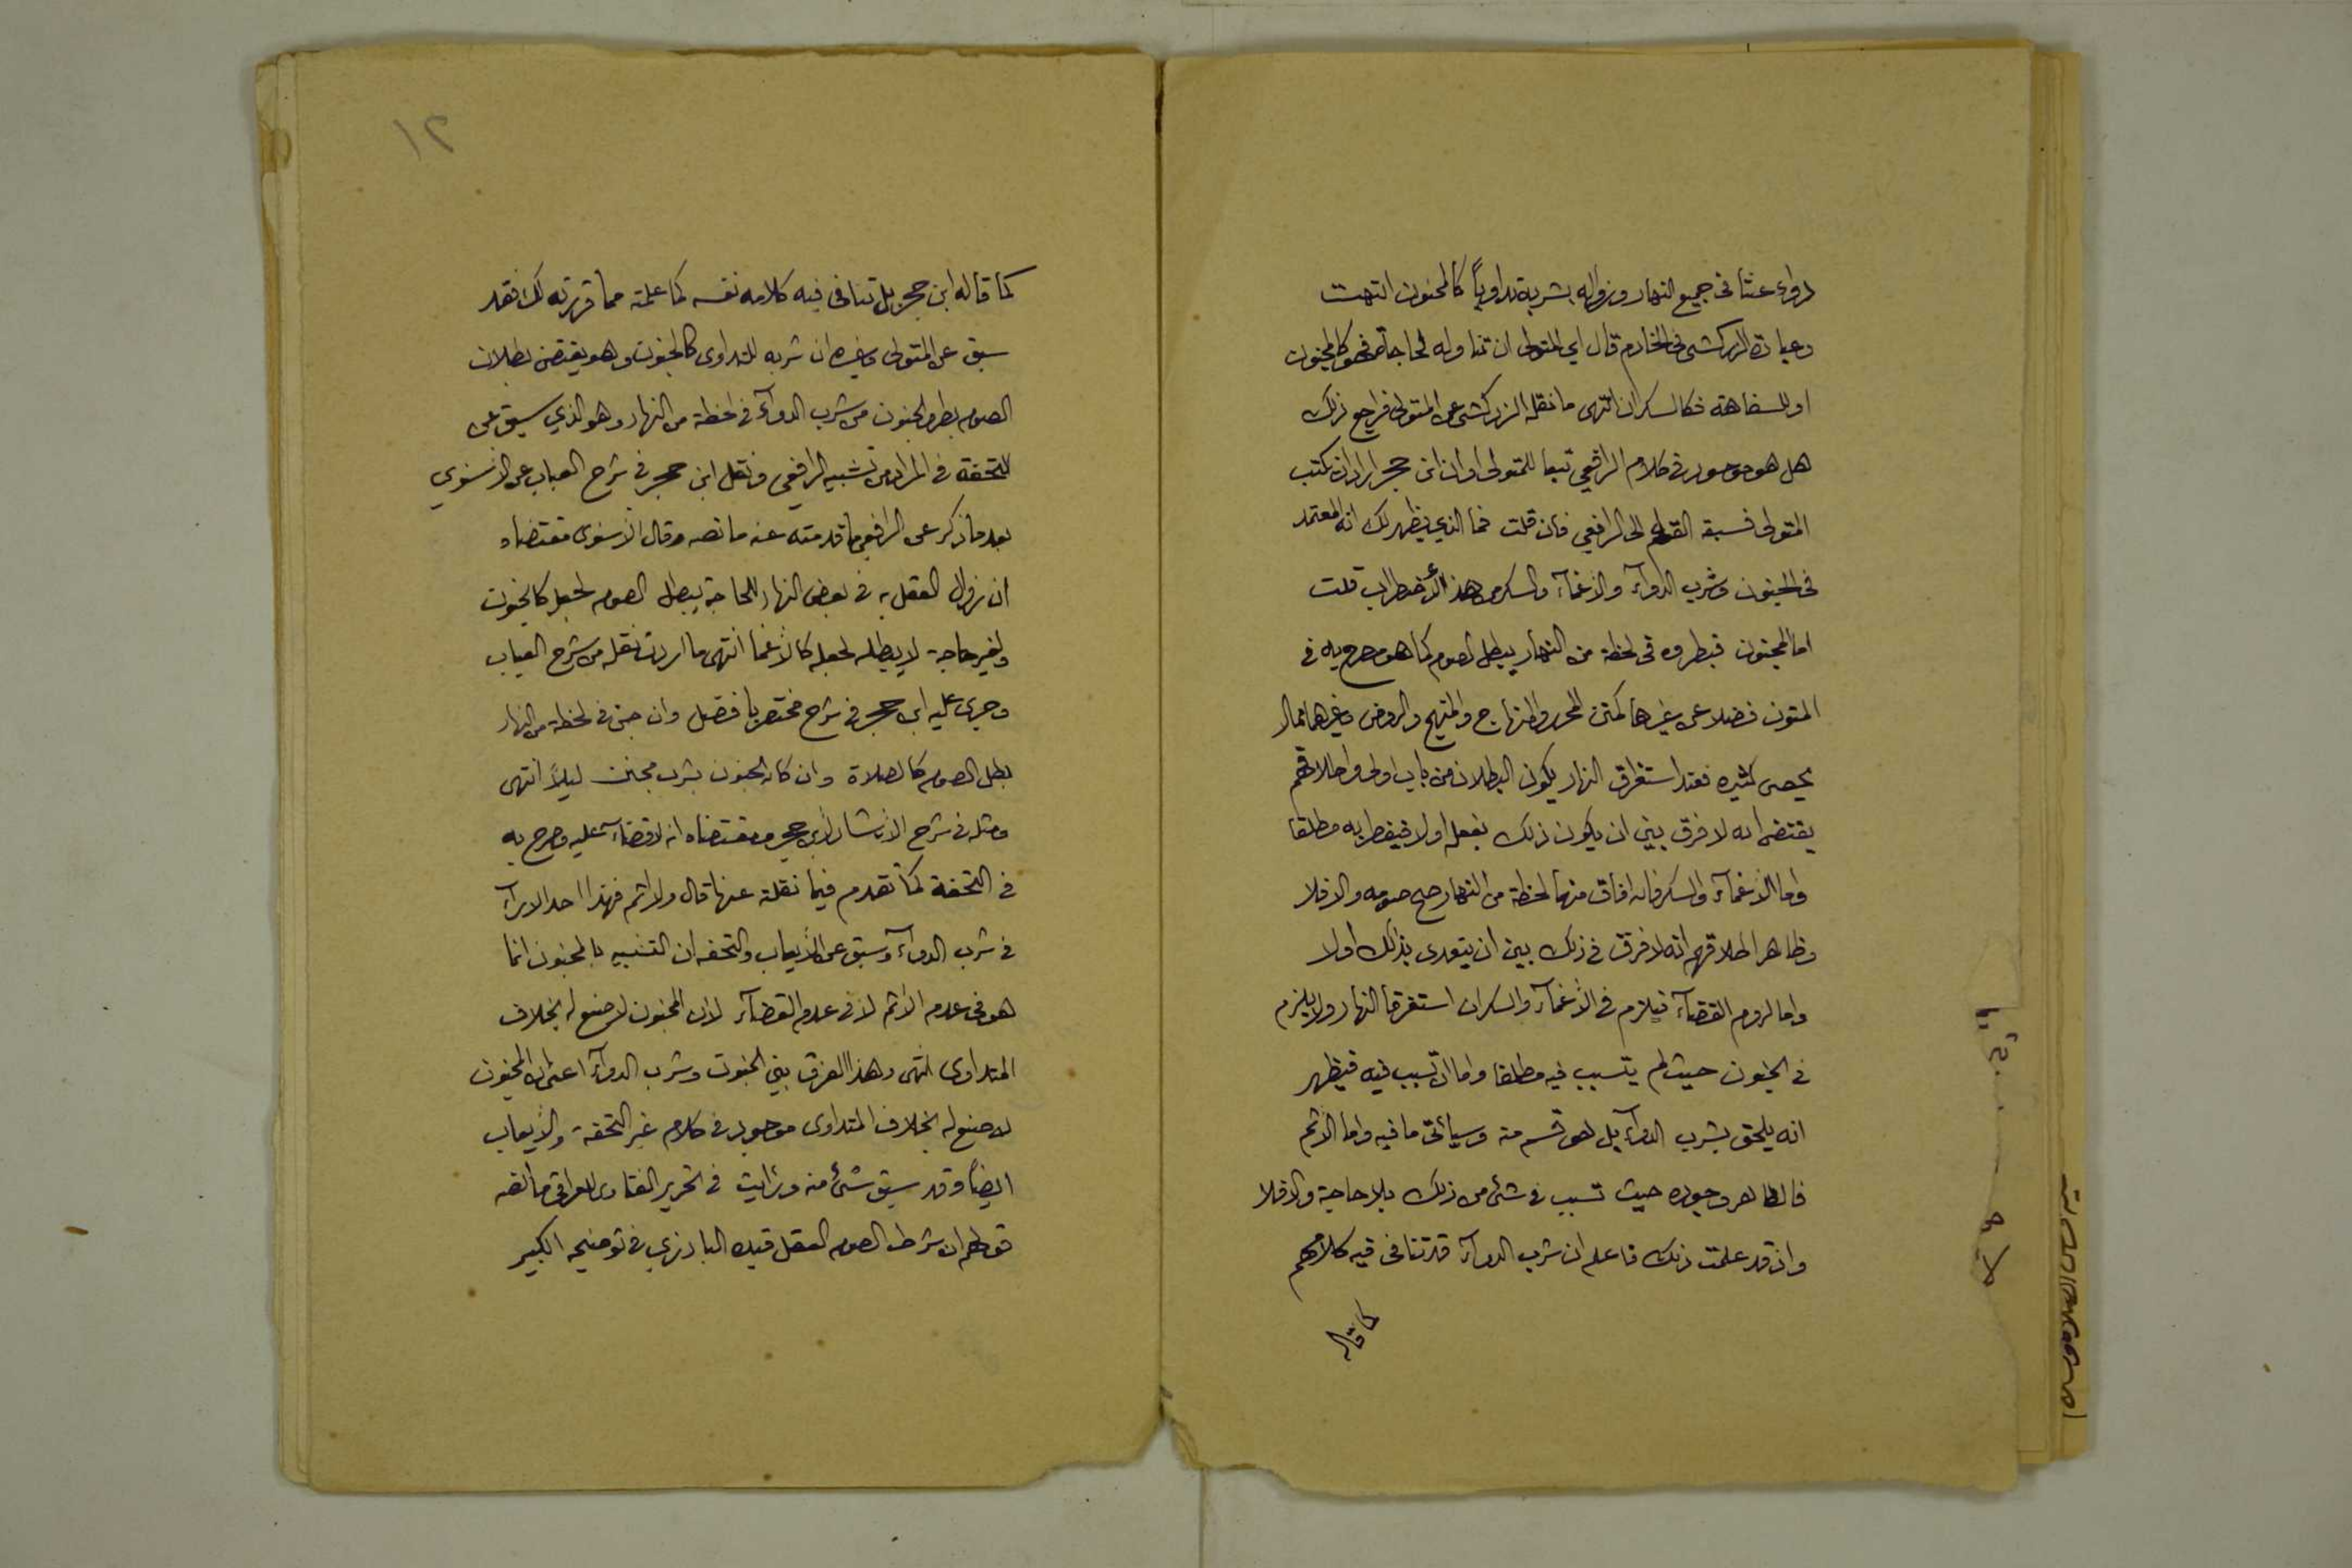 دواء عبثا في جميع النهار وزواله بشربه تداوياً كالجنون انتهت
وعبارة الزركشي في الخادم قال اي المتولي ان تناوله لحاجة فهو كالمجنون
او للسفاهة فكالسكران انتهى ما نقله الزركشي عن المتولي فراجع ذلك
هل هو موجود في كلام الرافعي تبعا للمتولي او ان ابن حجر اراد ان يكتب
المتولي فسبقه القلم الى الرافعي فان قلت فما الذي يظهر لك انه المعتمد
في الجنون وشرب الدوآء والاغمآء والسكر من هذا الأضطراب قلت
اما الجنون فبطروه في لحظة من النهار يبطل الصوم كما هو مصرح به في
المتون فضلا عن غيرها كمتن المحرر والمنهاج والمنهج والروض وغيرها مما لا
يحصى كثيره فعند استغراق النهار يكون البطلان من باب اولى واطلاقهم
يقتضي انه لا فرق بين ان يكون ذلك بفعله او لا فيفطر به مطلقا
واما الأغمآء والسكر فان افاق منهما لحظة من النهار صح صومه والا فلا
وظاهر اطلاقهم انه لا فرق في ذلك بين ان يتعدى بذلك اولا
واما لزوم القضآء فيلزم في الأغمآء والسكران استغرقا النهار ولا يلزم
في الجنون حيث لم يتسبب فيه مطلقا واما ان تسبب فيه فيظهر
انه يلحق بشرب الدوآء بل هو قسم منه وسيأتي ما فيه واما الأثم
فالظاهر وجوده حيث تسبب في شئ من ذلك بلا حاجة والا فلا
واذ قد علمت ذلك فاعلم ان شرب الدوآء قد تنافى فيه كلامهم
كما قاله
١٢
كما قاله ابن حجر بل تنافى فيه كلامه نفسه كما علمته مما قررته لك فقد
سبق عن المتولي وغيره ان شربه للتداوي كالجنون وهو يقتضي بطلان
الصوم بطرو الجنون من شرب الدوآء في لحظة من النهار وهو الذي سبق عن
التحفة في المراد من تشبيه الرافعي ونقل ابن حجر في شرح العباب عن الأسنوي
بعد ما ذكر عن الرافعي ما قدمته عنه ما نصه وقال الأسنوي مقتضاه
ان زوال العقل به في بعض النهار للحاجة يبطل الصوم لجعله كالجنون
ولغير حاجة لا يبطله لجعله كالأغما انتهى ما اردت نقله من شرح العباب
وجرى عليه ابن حجر في شرح مختصر بافضل وان جن في لحظة من النهار
بطل الصوم كالصلاة وان كان الجنون بشرب مجنن ليلاً انتهى
ومثله في شرح الارشاد لأبن حجر ومقتضاه انه لا قضآء عليه وصرح به
في التحفة كما تقدم فيما نقلته عنها قال ولا اثم فهذا احد الارآء
في شرب الدوآء وسبق عن الأيعاب والتحفه ان التشبيه بالمجنون انما
هو في عدم الاثم لا في عدم القضآء لان المجنون لا صنع له بخلاف
المتداوي انتهى وهذا الفرق بين الجنون وشرب الدوآء اعني ان المجنون
لا صنع له بخلاف المتداوي موجود في كلام غير التحفة والأيعاب
ايضاً وقد سبق شئ منه ورأيت في تحرير الفتاوى للعراقي ما نصه
قولهم ان شرط الصوم العقل قيده البارزي في توضيحه الكبير